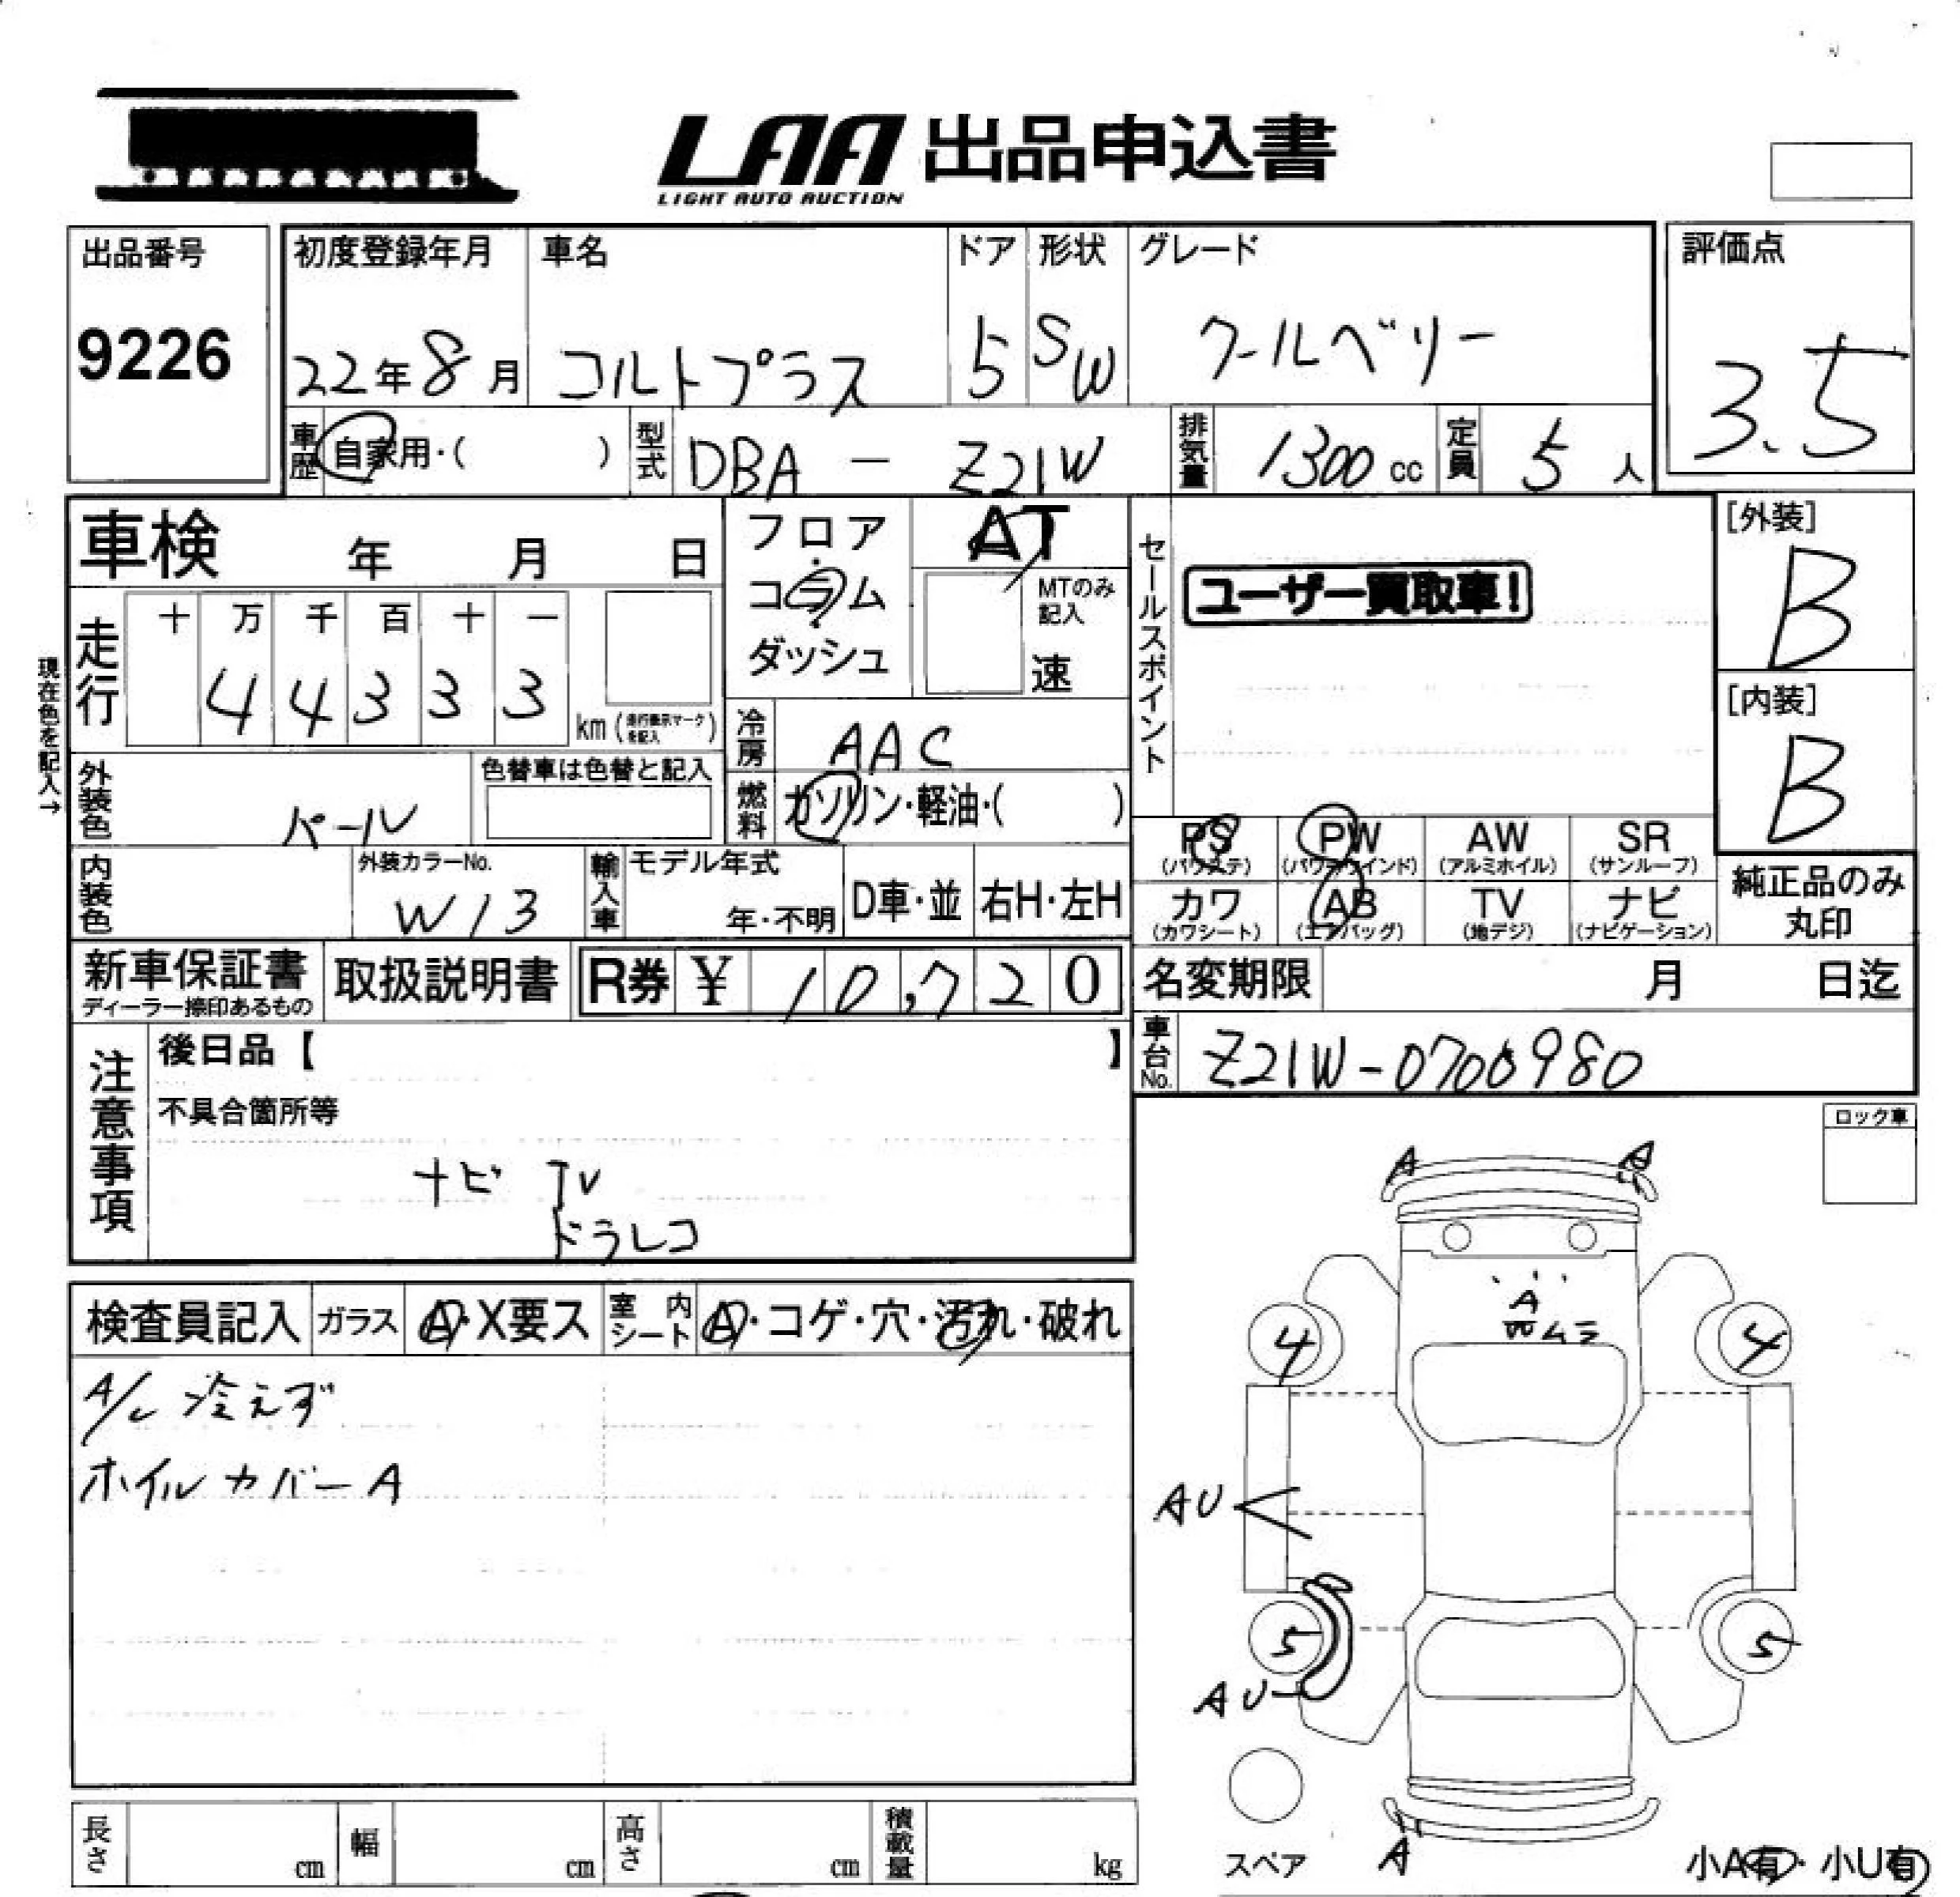 LAA 出品申込書
LIGHT AUTO AUCTION
出品番号
9226
初度登録年月
22年8月
車名
コルトプラス
ドア
5
形状
SW
グレード
クールベリー
評価点
3.5
車歴
自家用・( )
型式
DBA - Z21W
排気量
1300 cc
定員
5 人
車検 年 月 日
フロア・コラム・ダッシュ
AT
MTのみ記入
速
セールスポイント
ユーザー買取車!
[外装]
B
[内装]
B
現在色を記入→
走行
十 万 千 百 十 一
4 4 3 3 3
km (走行表示マークを記入)
冷房
AAC
燃料
ガソリン・軽油・( )
外装色
パール
色替車は色替と記入
内装色
外装カラーNo.
W13
輸入車
モデル年式
年・不明
D車・並
右H・左H
PS
(パワステ)
PW
(パワーウインド)
AW
(アルミホイル)
SR
(サンルーフ)
カワ
(カワシート)
AB
(エアバッグ)
TV
(地デジ)
ナビ
(ナビゲーション)
純正品のみ
丸印
新車保証書
ディーラー捺印あるもの
取扱説明書
R券 ¥ 10,720
名変期限 月 日迄
車台No.
Z21W-0706980
注意事項
後日品【 】
不具合箇所等
ナビ TV
ドラレコ
ロック車
検査員記入
ガラス
A・X要ス
室内シート
A・コゲ・穴・汚れ・破れ
A/C 冷えず
ホイルカバーA
A
A
A
ムラ
4
4
AU
5
5
AU
A
スペア
小A有・小U有
長さ cm
幅 cm
高さ cm
積載量 kg